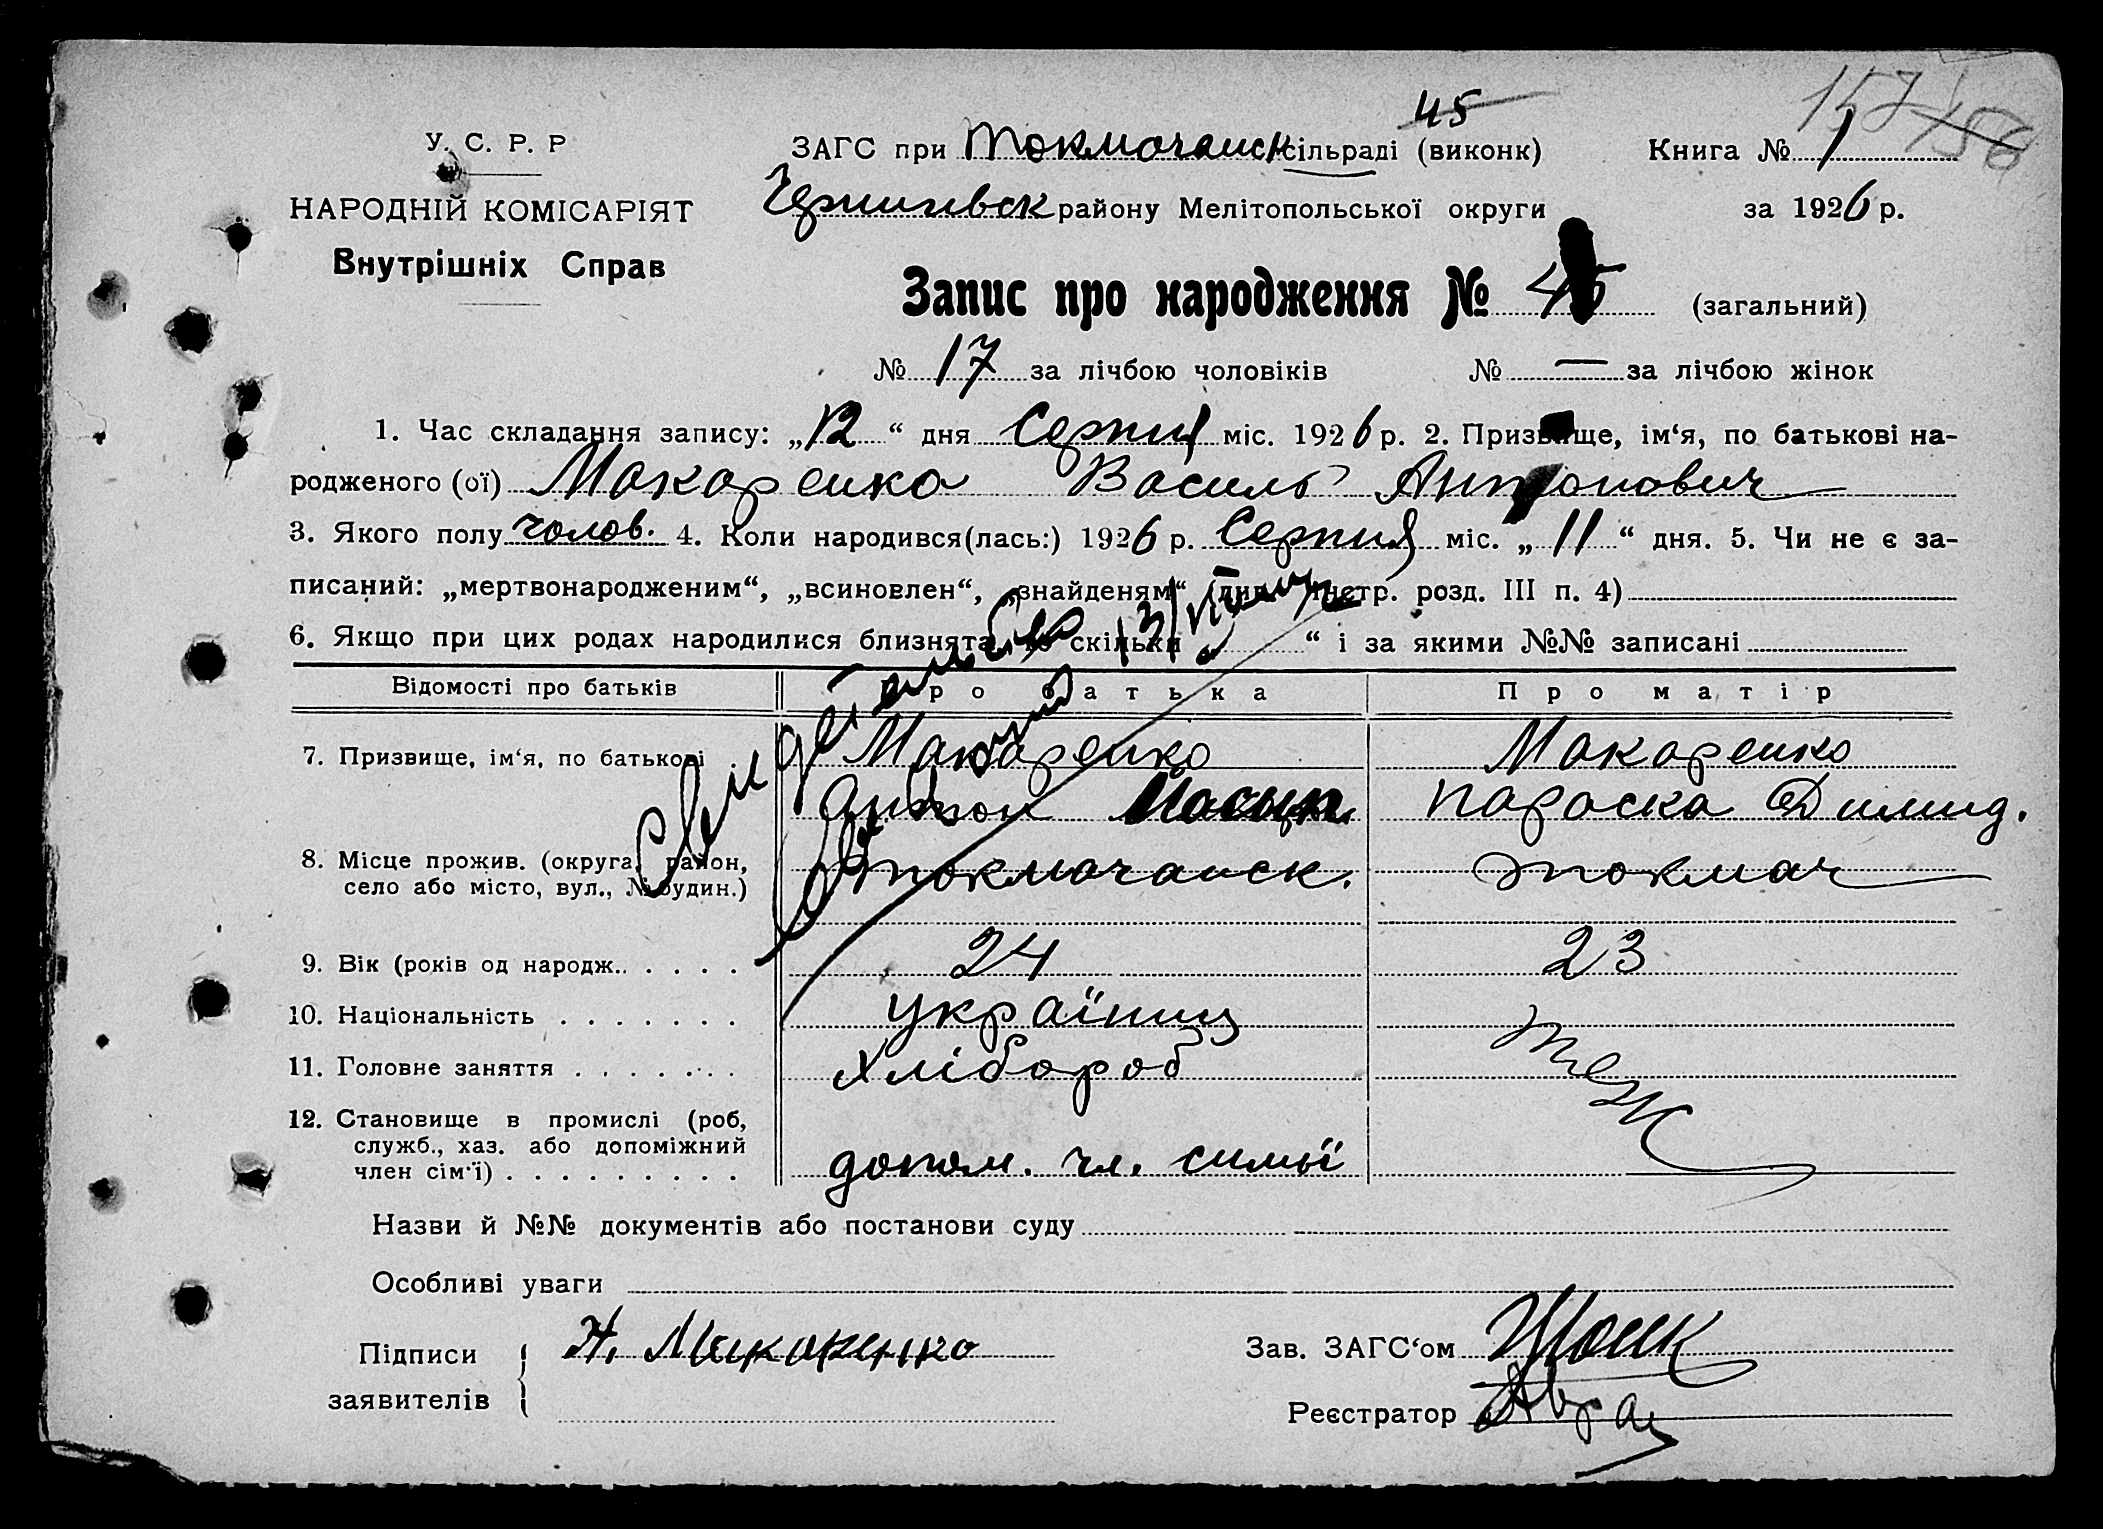 157 156
45
У. С. Р. Р
ЗАГС при Токмочанск сільраді (виконк)
Книга № 1
НАРОДНІЙ КОМІСАРІЯТ
Чернигівск району Мелітопольської округи
за 1926 р.
Внутрішніх Справ
Запис про народження № 45 (загальний)
№ 17 за лічбою чоловіків № — за лічбою жінок
1. Час складання запису: „12“ дня Серпня міс. 1926 р. 2. Призвище, ім‘я, по батькові на-
родженого (ої) Макаренко Василь Антонович
3. Якого полу чолов. 4. Коли народився(лась:) 1926 р. Серпня міс. „11“ дня. 5. Чи не є за-
писаний: „мертвонародженим“, „всиновлен“, „знайденям“ (див. Інстр. розд. III п. 4)
6. Якщо при цих родах народилися близнята, то скільки „ “ і за якими №№ записані
Відомості про батьків Про батька Про матір
7. Призвище, ім‘я, по батькові Макаренко Макаренко
Антон Параска Димид.
8. Місце прожив. (округа, район,
село або місто, вул., № будин.) Токмочанск. Токмач
9. Вік (років од народж. 24 23
10. Національність українец
11. Головне заняття Хлібороб теж
12. Становище в промислі (роб,
служб., хаз. або допоміжний
член сім‘ї) допом. чл. симьї
Назви й №№ документів або постанови суду
Особливі уваги
Підписи А. Макаренко Зав. ЗАГС‘ом
заявителів Реєстратор